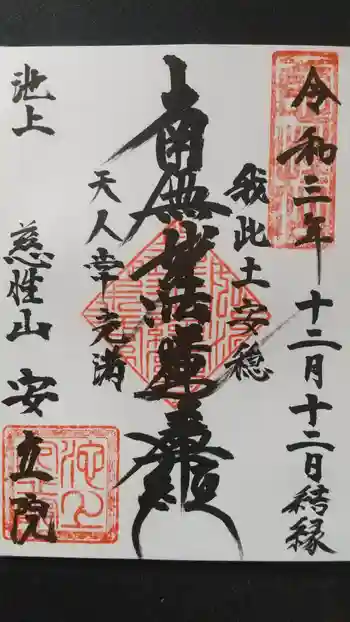 令和三年 十二月十二日結縁
我此土安穏
南無妙法蓮華経
天人常充満
池上 慈性山 安立院